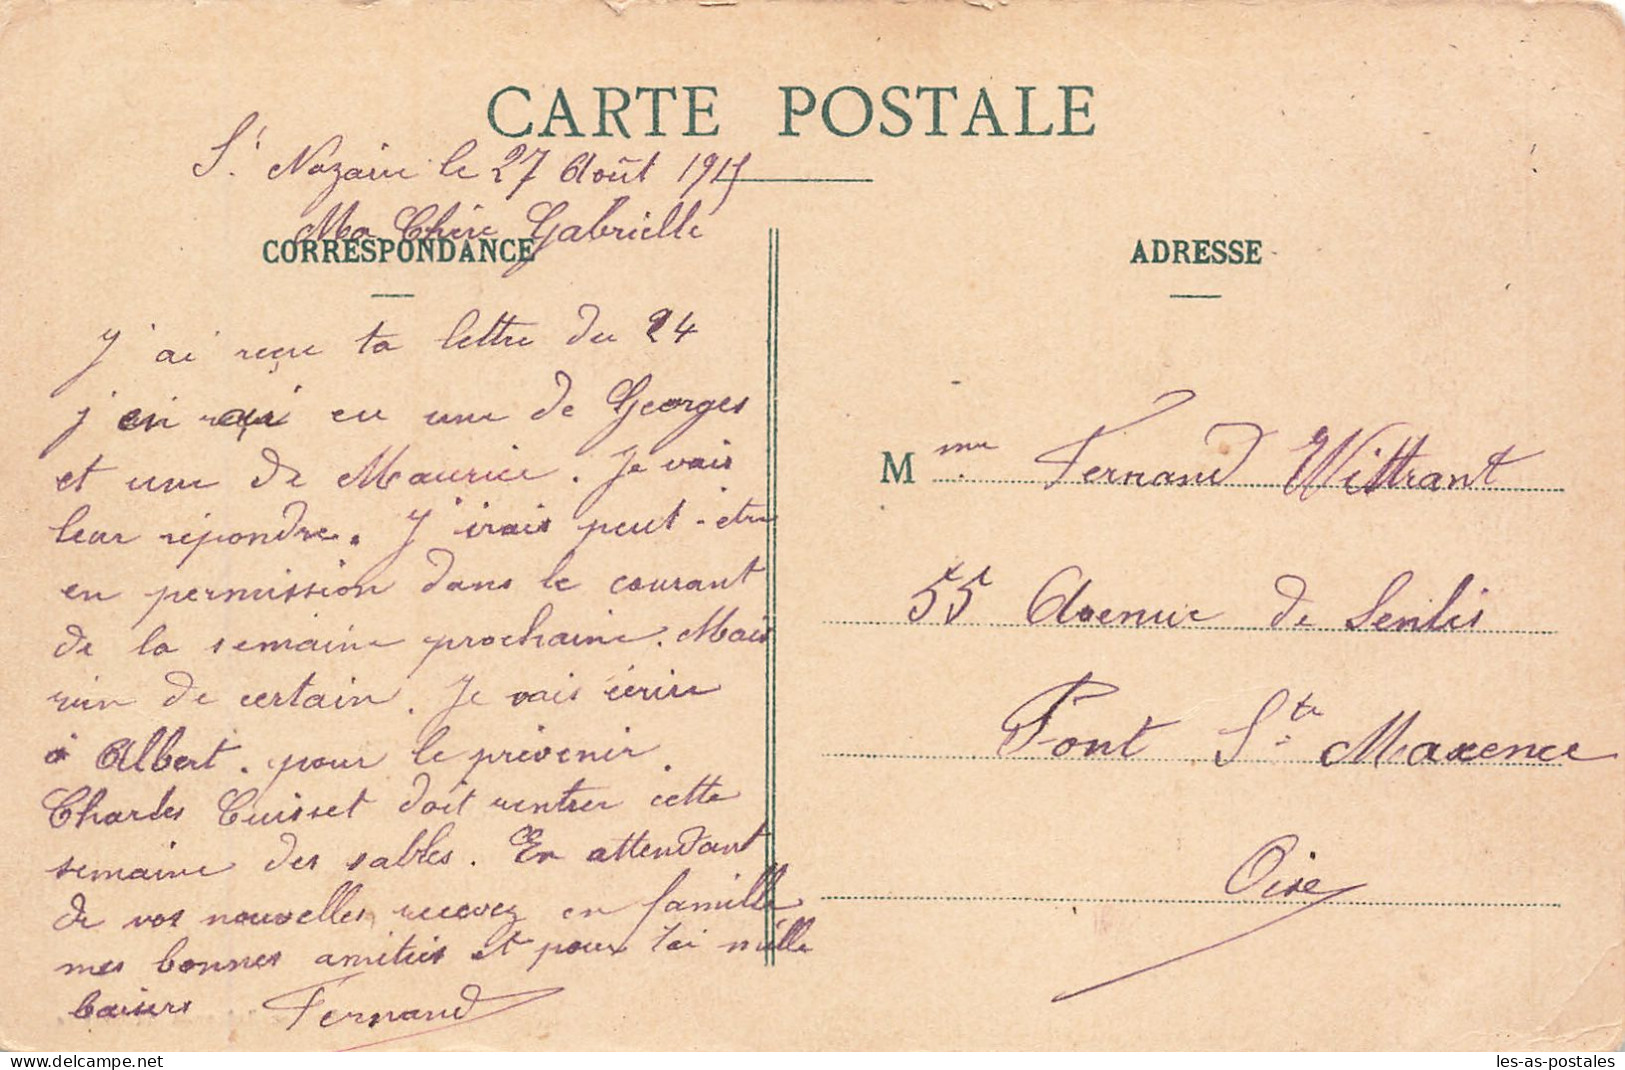 CARTE POSTALE
St Nazaire le 27 Août 1915
Ma Chère Gabrielle
CORRESPONDANCE
J'ai reçu ta lettre du 24
j'en ai eu une de Georges
et une de Maurice. Je vais
leur répondre. J'irais peut-être
en permission dans le courant
de la semaine prochaine. Mais
rien de certain. Je vais écrire
à Albert. pour le prévenir.
Charles Cuisset doit rentrer cette
semaine des sables. En attendant
de vos nouvelles recevez en famille
mes bonnes amitiés et pour toi mille
baisers Fernand
ADRESSE
Mme Fernand Wittrant
55 Avenue de Senlis
Pont Ste Maxence
Oise
les-as-postales